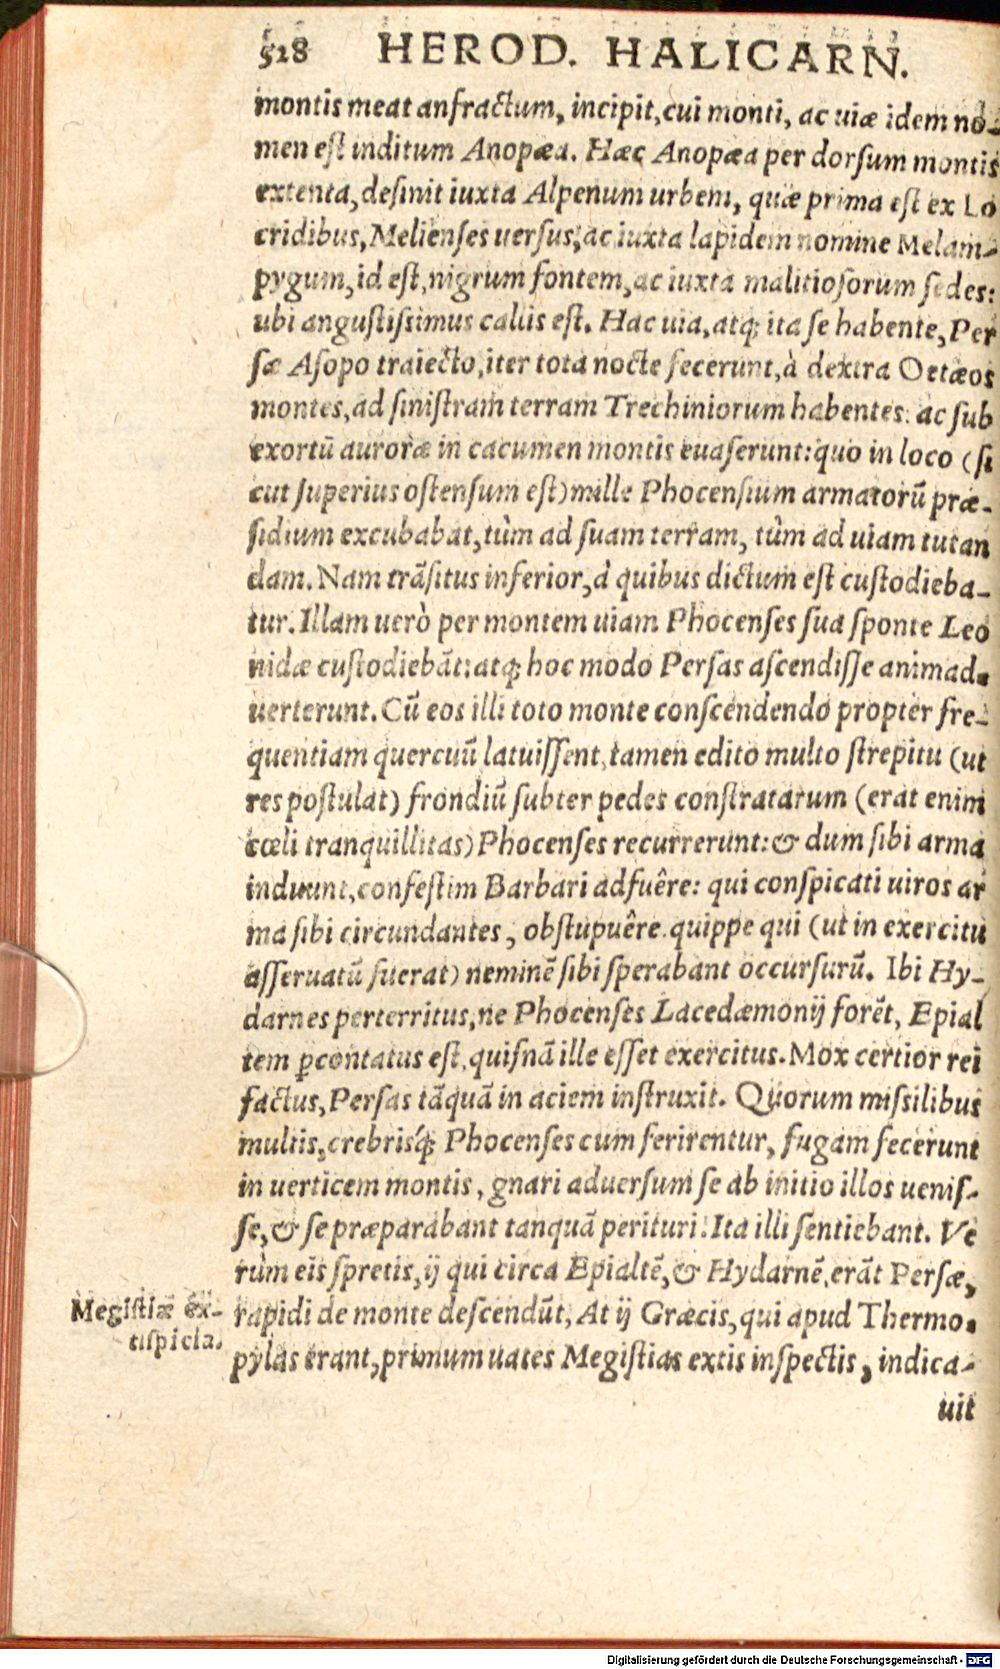 528 HEROD. HALICARN.
montis meat anfractum, incipit, cui monti, ac uiæ idem no-
men est inditum Anopæa. Hæc Anopæa per dorsum montis
extenta, desinit iuxta Alpenum urbem, quæ prima est ex Lo
cridibus, Melienses uersus, ac iuxta lapidem nomine Melam-
pygum, id est, nigrum fontem, ac iuxta malitiosorum sedes:
ubi angustissimus callis est. Hac uia, atq; ita se habente, Per
sæ Asopo traiecto, iter tota nocte fecerunt, à dextra Oetæos
montes, ad sinistram terram Trechiniorum habentes: ac sub
exortũ auroræ in cacumen montis euaserunt: quo in loco (si
cut superius ostensum est) mille Phocensium armatorũ præ-
sidium excubabat, tùm ad suam terram, tùm ad uiam tutan
dam. Nam trãsitus inferior, à quibus dictum est custodieba-
tur. Illam uerò per montem uiam Phocenses sua sponte Leo
nidæ custodiebãt: atq; hoc modo Persas ascendisse animad-
uerterunt. Cũ eos illi toto monte conscendendo propter fre-
quentiam quercuũ latuissent, tamen edito multo strepitu (ut
res postulat) frondiũ subter pedes constratarum (erat enim
cœli tranquillitas) Phocenses recurrerunt: & dum sibi arma
induunt, confestim Barbari adfuêre: qui conspicati uiros ar
ma sibi circundantes, obstupuêre. quippe qui (ut in exercitu
asseruatũ fuerat) neminẽ sibi sperabant occursurũ. Ibi Hy-
darnes perterritus, ne Phocenses Lacedæmonij forẽt, Epial
tem ꝑcontatus est, quisnã ille esset exercitus. Mox certior rei
factus, Persas tãquã in aciem instruxit. Quorum missilibus
multis, crebrisq́; Phocenses cum ferirentur, fugam fecerunt
in uerticem montis, gnari aduersum se ab initio illos uenis-
se, & se præparabant tanquã perituri. Ita illi sentiebant. Ve
rùm eis spretis, ij qui circa Epialtẽ, & Hydarnẽ, erãt Persæ,
rapidi de monte descendũt, At ij Græcis, qui apud Thermo-
pylas erant, primum uates Megistias extis inspectis, indica-
uit
Megistiæ ex-
tispicia.
Digitalisierung gefördert durch die Deutsche Forschungsgemeinschaft - DFG